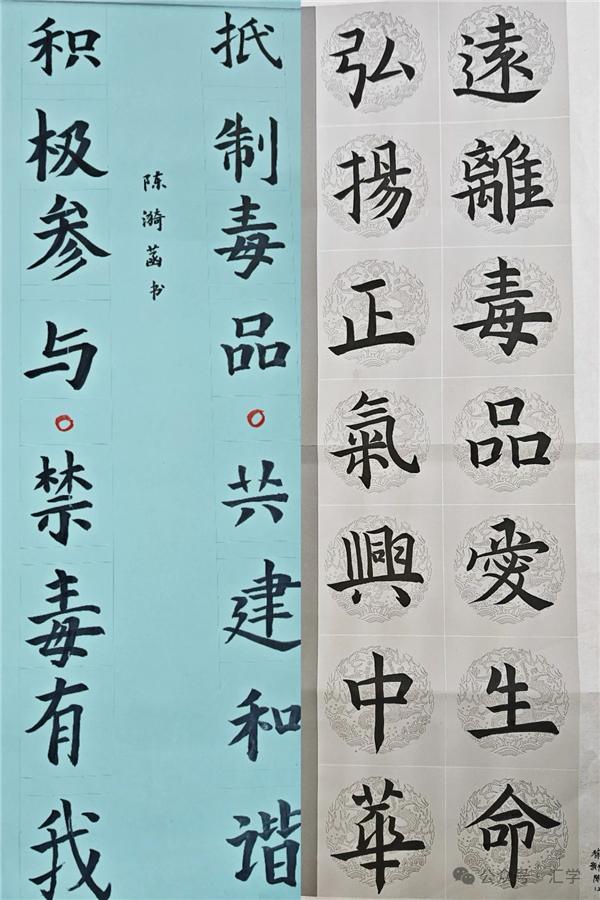 抵制毒品。共建和谐
积极参与。禁毒有我
陈漪菡书
遠離毒品愛生命
弘揚正氣興中華
公众号·汇学